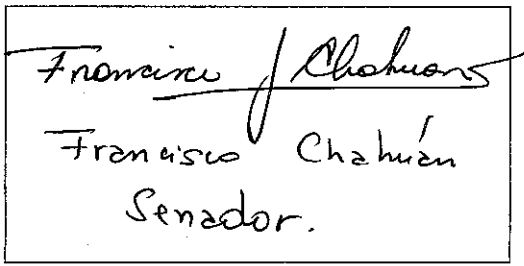 Francisco J Chahuán
Francisco Chahuán
Senador.